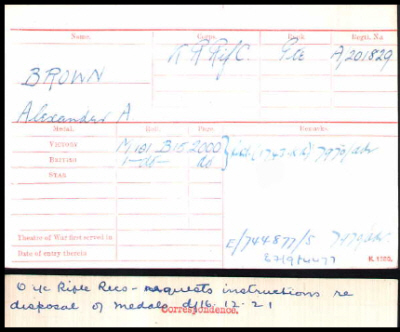 Name. Corps. Rank. Regtl. No.
BROWN K R Rif C. Pte A/201829
Alexander A
Medal. Roll. Page. Remarks.
VICTORY M/101 B15 2000
BRITISH -do- do
STAR
Theatre of War first served in
Date of entry therein
E/744877/S
K. 1380.
O i/c Rifle Recs- requests instructions re
disposal of medals d/16.12.21
Correspondence.